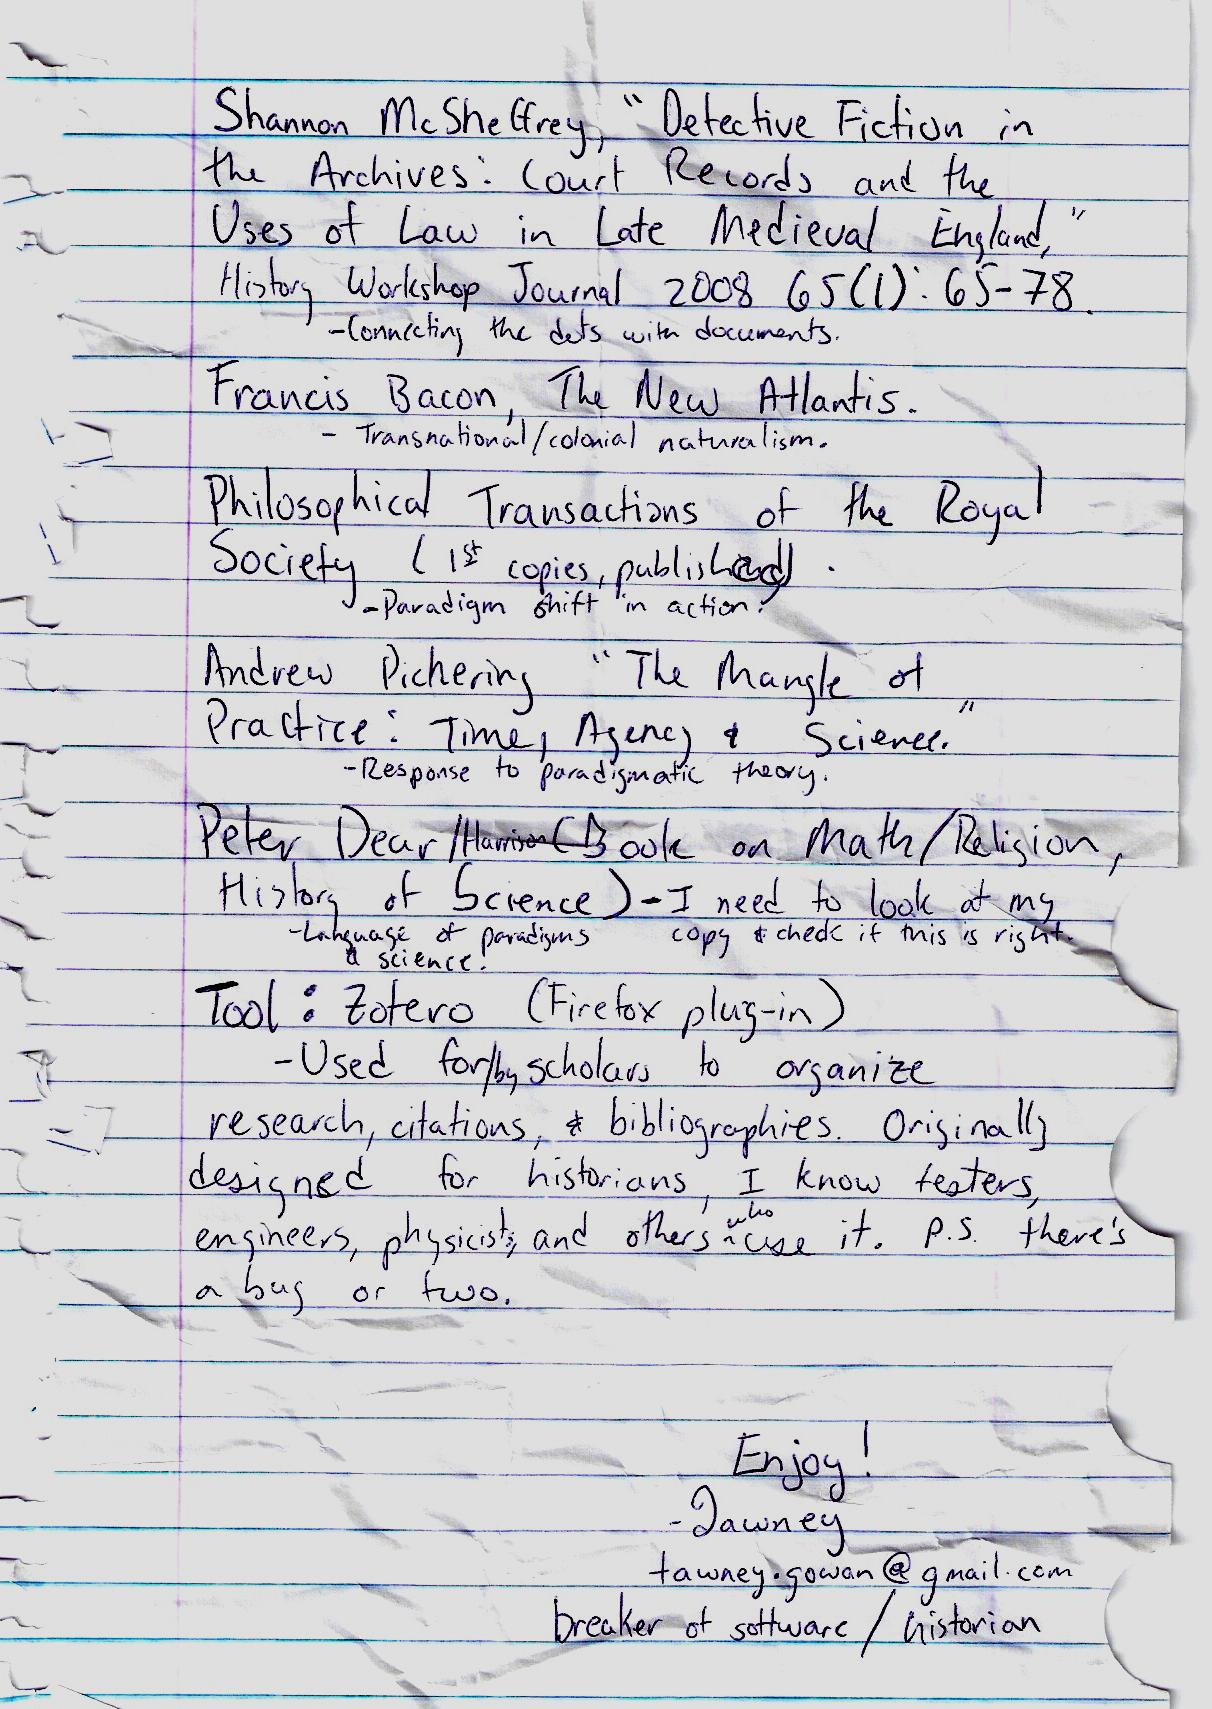 Shannon McSheffrey, "Detective Fiction in
the Archives: Court Records and the
Uses of Law in Late Medieval England,"
History Workshop Journal 2008 65(1): 65-78.
-Connecting the dots with documents.
Francis Bacon, The New Atlantis.
- Transnational/colonial naturalism.
Philosophical Transactions of the Royal
Society (1st copies, published).
-Paradigm shift in action!
Andrew Pichering "The Mangle of
Practice: Time, Agency & Science."
-Response to paradigmatic theory.
Peter Dear/Harrison (Book on Math/Religion,
History of Science) - I need to look at my
copy & check if this is right.
-Language of paradigms
& science!
Tool: Zotero (Firefox plug-in)
-Used for/by scholars to organize
research, citations, & bibliographies. Originally
designed for historians, I know testers,
engineers, physicists, and others who use it. P.S. there's
a bug or two.
Enjoy!
-Tawney
tawney.gowan@gmail.com
breaker of software / historian